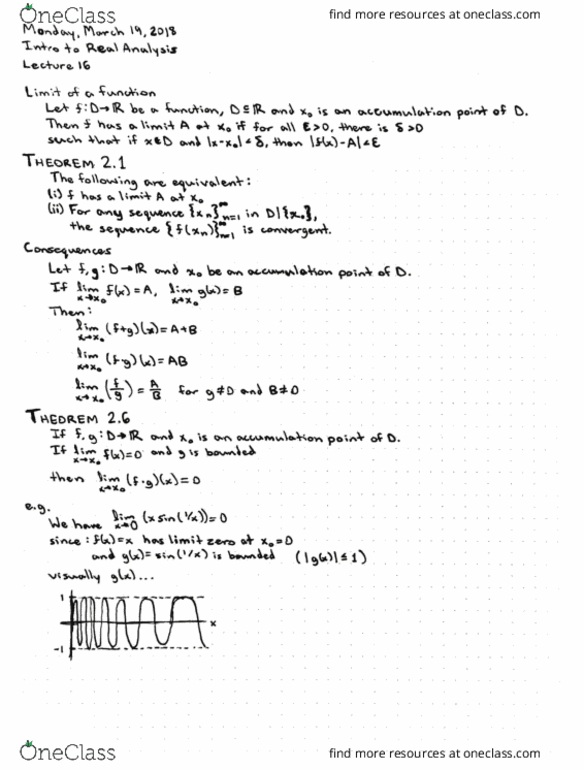 OneClass
find more resources at oneclass.com
Monday, March 19, 2018
Intro to Real Analysis
Lecture 16
Limit of a function
Let f:D→ℝ be a function, D⊆ℝ and x₀ is an accumulation point of D.
Then f has a limit A at x₀ if for all ε>0, there is δ>0
such that if x∈D and |x-x₀|<δ, then |f(x)-A|<ε
THEOREM 2.1
The following are equivalent:
(i) f has a limit A at x₀
(ii) For any sequence {xₙ}∞ₙ₌₁ in D|{x₀},
the sequence {f(xₙ)}∞ₙ₌₁ is convergent.
Consequences
Let f,g:D→ℝ and x₀ be an accumulation point of D.
If lim x→x₀ f(x)=A, lim x→x₀ g(x)=B
Then:
lim x→x₀ (f+g)(x)=A+B
lim x→x₀ (f·g)(x)=AB
lim x→x₀ (f/g)=A/B for g≠0 and B≠0
THEOREM 2.6
If f,g:D→ℝ and x₀ is an accumulation point of D.
If lim x→x₀ f(x)=0 and g is bounded
then lim x→x₀ (f·g)(x)=0
e.g.
We have lim x→0 (x sin(1/x))=0
since: f(x)=x has limit zero at x₀=0
and g(x)=sin(1/x) is bounded (|g(x)|≤1)
visually g(x)...
1
x
-1
OneClass
find more resources at oneclass.com